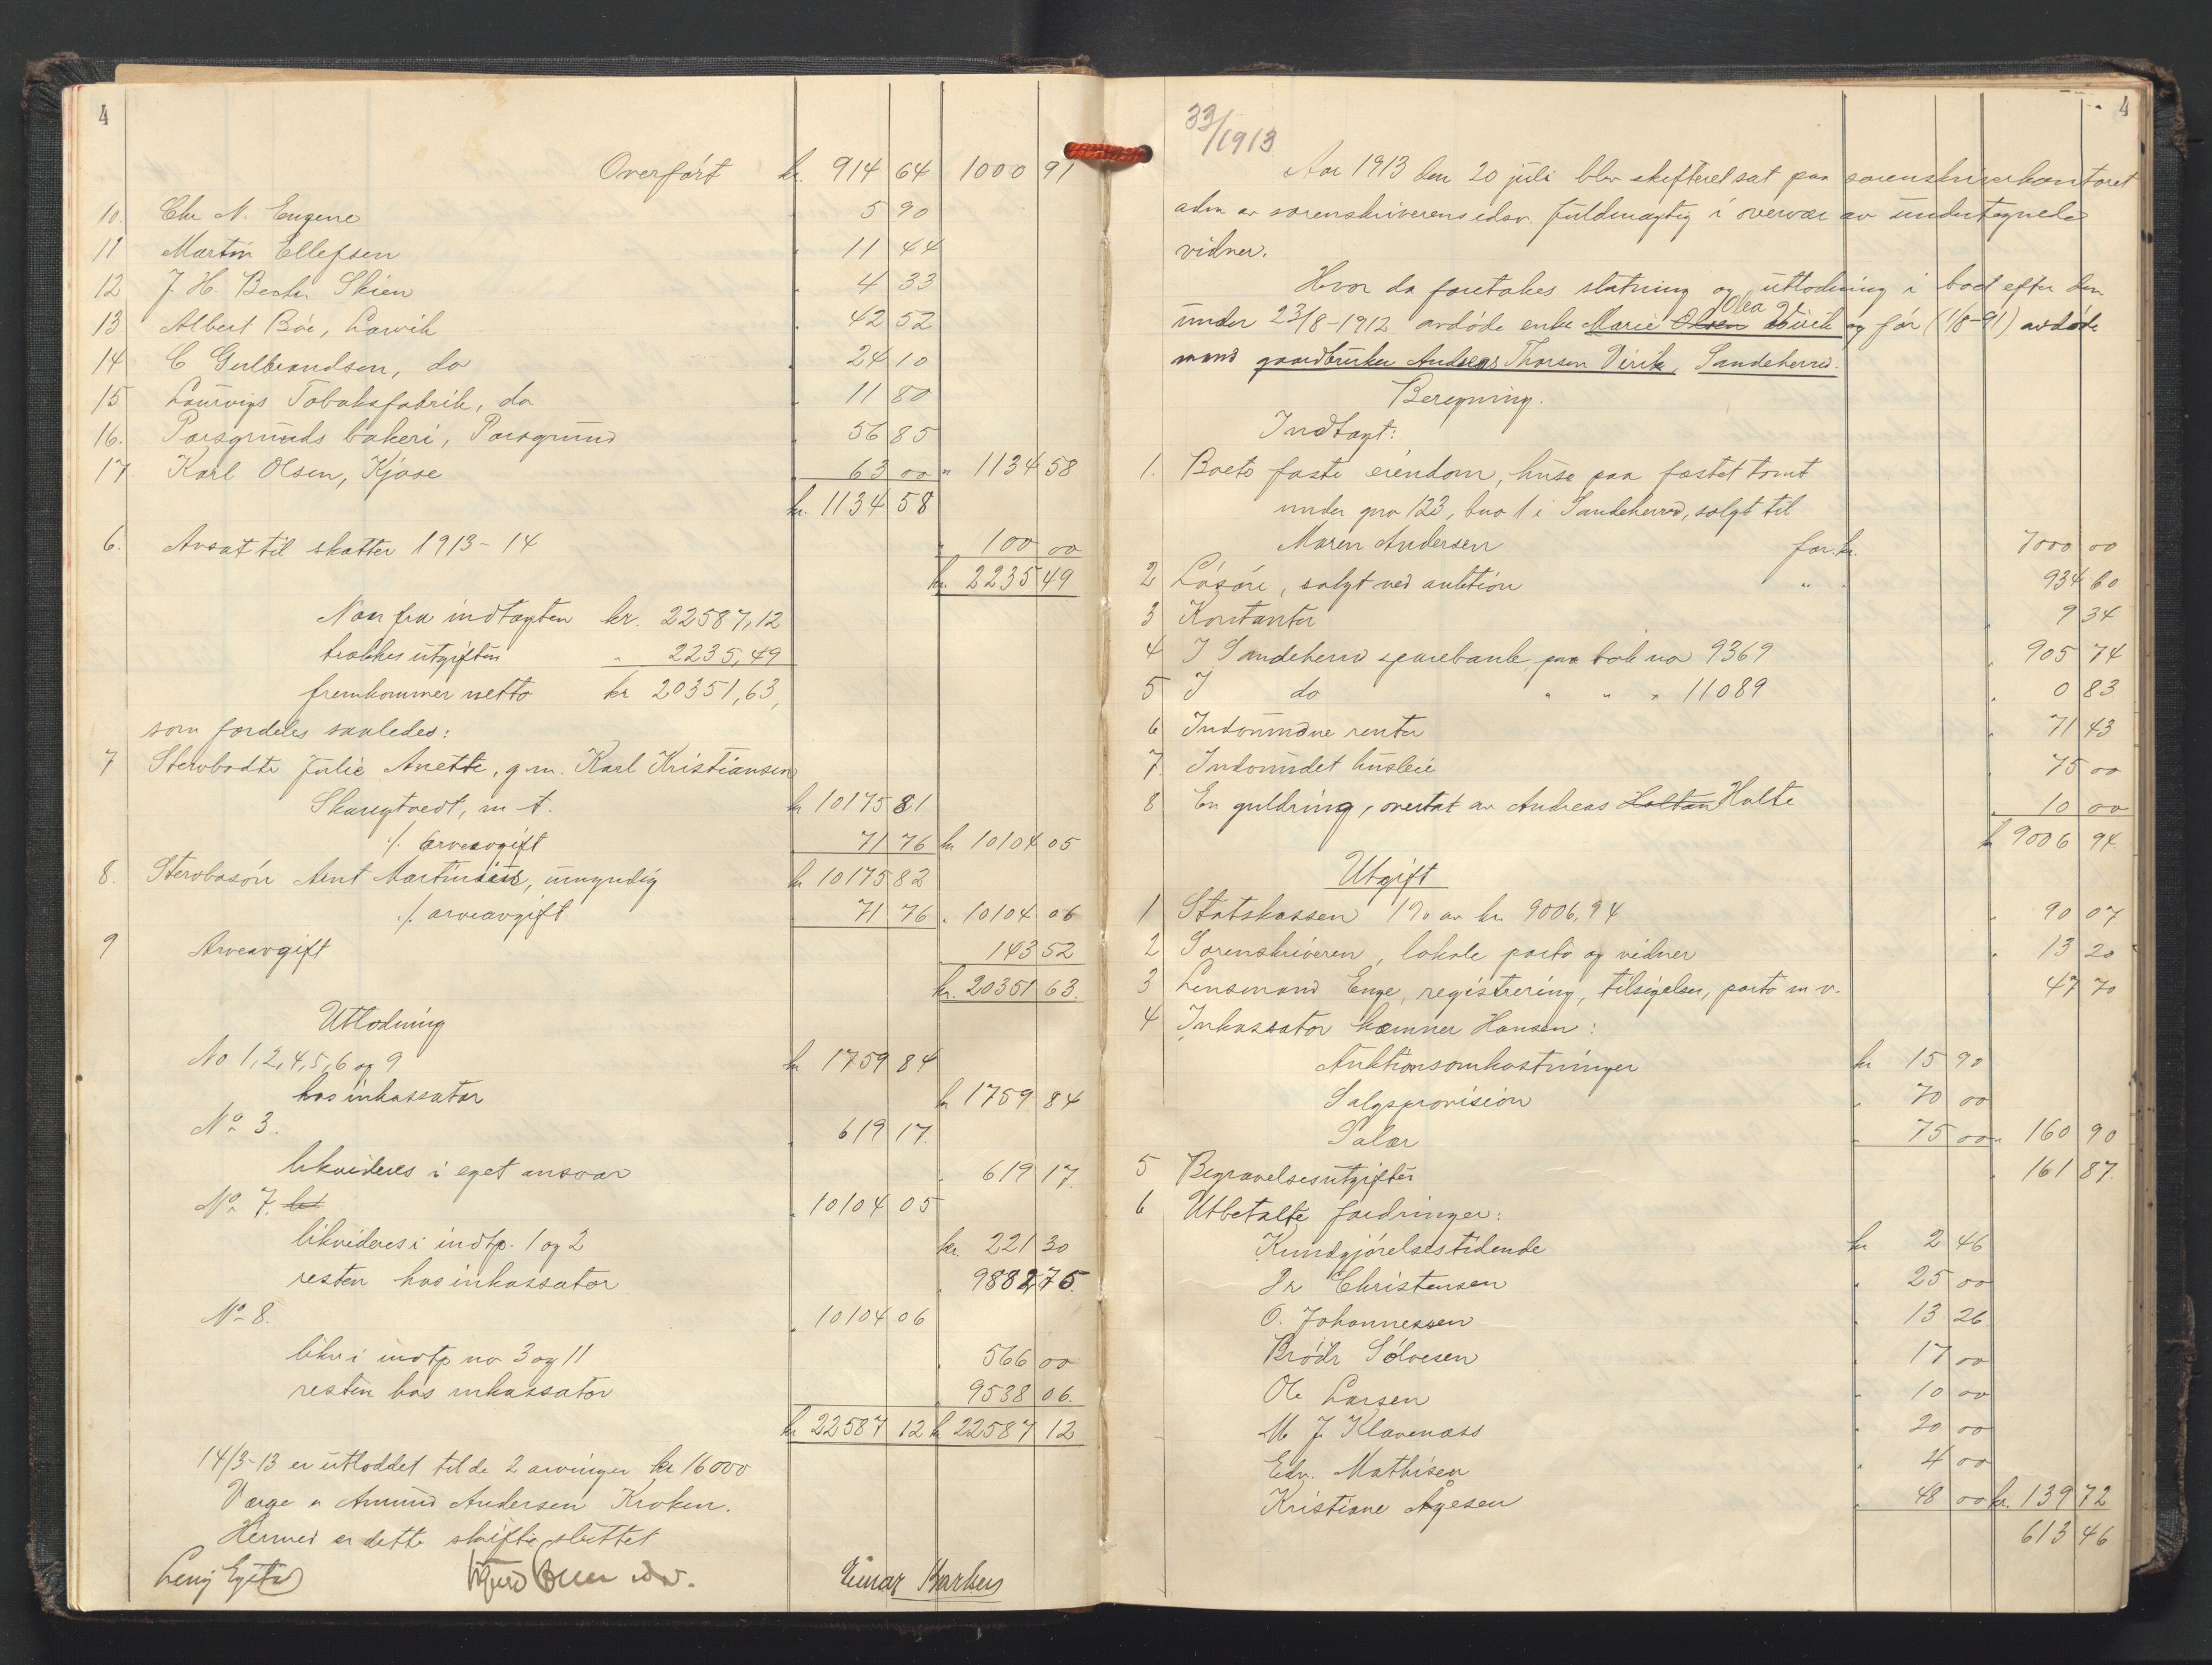 4
Overført kr. 914 64 1000 91
10. Chr N. Eugene " 5 90
11 Martin Ellefsen " 11 44
12 J. H. Skien " 4 33
13 Albert Bøe, Larvik " 42 52
14 C Gulbrandsen, do " 24 10
15 Laurvigs Tobaksfabrik, do " 11 80
16. Porsgrunds bakeri, Porsgrund " 56 85
17 Karl Olsen, Kjose " 63 00 " 1134 58
kr. 1134 58
6. Avsat til skatter 1913-14 " 100 00
kr. 2235 49
Naar fra indtægten kr. 22587,12
trækkes utgiften " 2235,49
fremkommer netto kr 20351,63,
som fordeles saaledes:
7 Stervbodtr Julie Anette, g.m. Karl Kristiansen
m-t. kr 10175 81
./. arveavgift 71 76 kr 10104 05
8. Stervbosøn Arnt Martinius, umyndig kr 10175 82
./. arveavgift 71 76 " 10104 06
9 Arveavgift 143 52
kr. 20351 63.
Utlodning
No 1, 2, 4, 5, 6 og 9 kr 1759 84
hos inkassator kr 1759 84
No 3. " 619 17.
likvideres i eget ansvar " 619 17.
No 7. " 10104 05
likvideres i indtp. 1 og 2 kr. 221 30
resten hos inkassator " 9882,75.
No 8. " 10104 06
likv i indtp no 3 og 11 " 566 00
resten hos inkassator " 9538 06.
kr 22587 12 kr 22587 12
14/3-13 er utloddet til de 2 arvinger kr 16000
Værge er Amund Andersen Kroken.
Hermed er dette skifte sluttet
Einar Barkus
33/1913
4
Aar 1913 den 20 juli blev skifteret sat paa sorenskriverkontoret
adm av sorenskriverens edsv. fuldmægtig i overvær av undertegnede
vidner.
Hvor da foretakes slutning og utlodning i boet efter den
under 23/8-1912 avdøde enke Marie Olsen Olea Virik og før (1/8-91) avdøde
mand gaardbruker Andreas Thorsen Virik, Sandeherred.
Beregning.
Indtægt:
1. Boets faste eiendom, huse paa fæstet tomt
under gno 123, bno 1 i Sandeherred, solgt til
Maren Andersen for kr. 7000 00
2 Løsøre, solgt ved auktion " " 934 60
3 Kontanter " 9 34
4 I Sandeherred sparebank, paa bok no 9369 " 905 74
5 I do " " " 11089 " 0 83
6 Indvundne renter " 71 43
7. Indvundet husleie " 75 00
8 En guldring, overtat av Andreas Holtan Holte " 10 00
kr 9006 94.
Utgift
1 Statskassen 1% av kr. 9006,94 " 90 07.
2 Sorenskriveren, lokale porto og vidner " 13 20
3 Lensmand Enge, registrering, tilsigelser, porto m v. " 47 70
4 Inkassator kæmner Hansen:
Auktionsomkostninger kr 15 90
Salgsprovision " 70 00
Salær " 75 00 " 160 90
5 Begravelsesutgifter " 161 87.
6 Utbetalte fordringer:
Kundgjørelsestidende kr 2 46
Dr Christensen " 25 00
O. Johannessen " 13 26
Brødr Sølvesen " 17 00
Ole Larsen " 10 00
M J. Klavenæss " 20 00
Edv. Mathisen " 4 00
Kristiane Agesen " 48 00 kr. 139 72
613 46